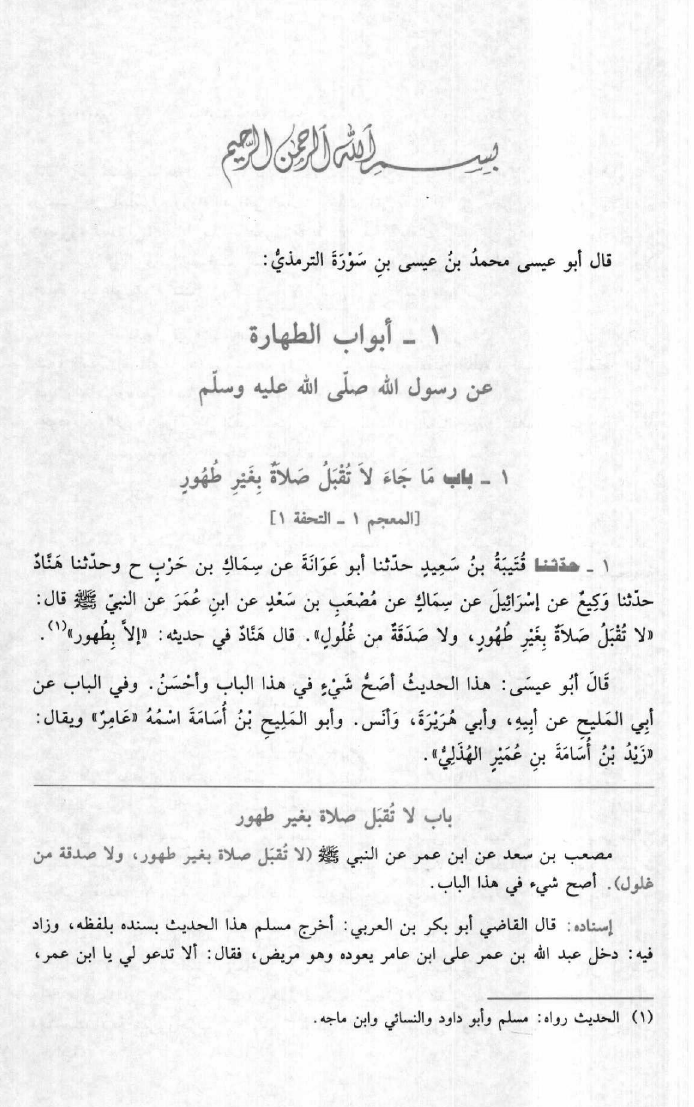 بسم الله الرحمن الرحيم
قال أبو عيسى محمدُ بنُ عيسى بنِ سَوْرَةَ الترمذيُّ:
١ ـ أبواب الطهارة
عن رسول الله صلّى الله عليه وسلّم
١ ـ باب مَا جَاءَ لاَ تُقْبَلُ صَلاَةٌ بِغَيْرِ طُهُورٍ
[المعجم ١ ـ التحفة ١]
١ ـ حدّثنا قُتَيبَةُ بنُ سَعِيدٍ حدّثنا أبو عَوَانَةَ عن سِمَاكِ بن حَرْبٍ ح وحدّثنا هَنَّادٌ
حدّثنا وَكِيعٌ عن إسْرَائِيلَ عن سِمَاكٍ عن مُصْعَبِ بن سَعْدٍ عن ابنِ عُمَرَ عن النبيّ ﷺ قال:
«لا تُقْبَلُ صَلاَةٌ بِغَيْرِ طُهُورٍ، ولا صَدَقَةٌ من غُلُولٍ». قال هَنَّادٌ في حديثه: «إلاَّ بِطُهور»(١).
قَالَ أبُو عيسَى: هذا الحديثُ أصَحُّ شَيْءٍ في هذا الباب وأحْسَنُ. وفي الباب عن
أبِي المَليحِ عن أبيهِ، وأبي هُرَيْرَةَ، وَأنَس. وأبو المَلِيحِ بْنُ أُسَامَةَ اسْمُهُ «عَامِرٌ» ويقال:
«زَيْدُ بْنُ أُسَامَةَ بنِ عُمَيْرٍ الهُذَلِيُّ».
باب لا تُقبَل صلاة بغير طهور
مصعب بن سعد عن ابن عمر عن النبي ﷺ (لا تُقبَل صلاة بغير طهور، ولا صدقة من
غلول). أصح شيء في هذا الباب.
إسناده: قال القاضي أبو بكر بن العربي: أخرج مسلم هذا الحديث بسنده بلفظه، وزاد
فيه: دخل عبد الله بن عمر على ابن عامر يعوده وهو مريض، فقال: ألا تدعو لي يا ابن عمر،
(١) الحديث رواه: مسلم وأبو داود والنسائي وابن ماجه.